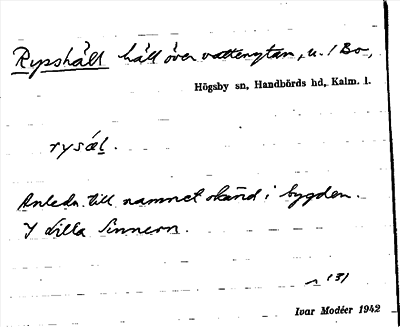 Rypshäll häll över vattenytan, u. 1 Bo,
Högsby sn, Handbörds hd, Kalm. l.
rysǽl.
Anledn. till namnet okänd i bygden.
I Lilla Sinnern.
131
Ivar Modéer 1942